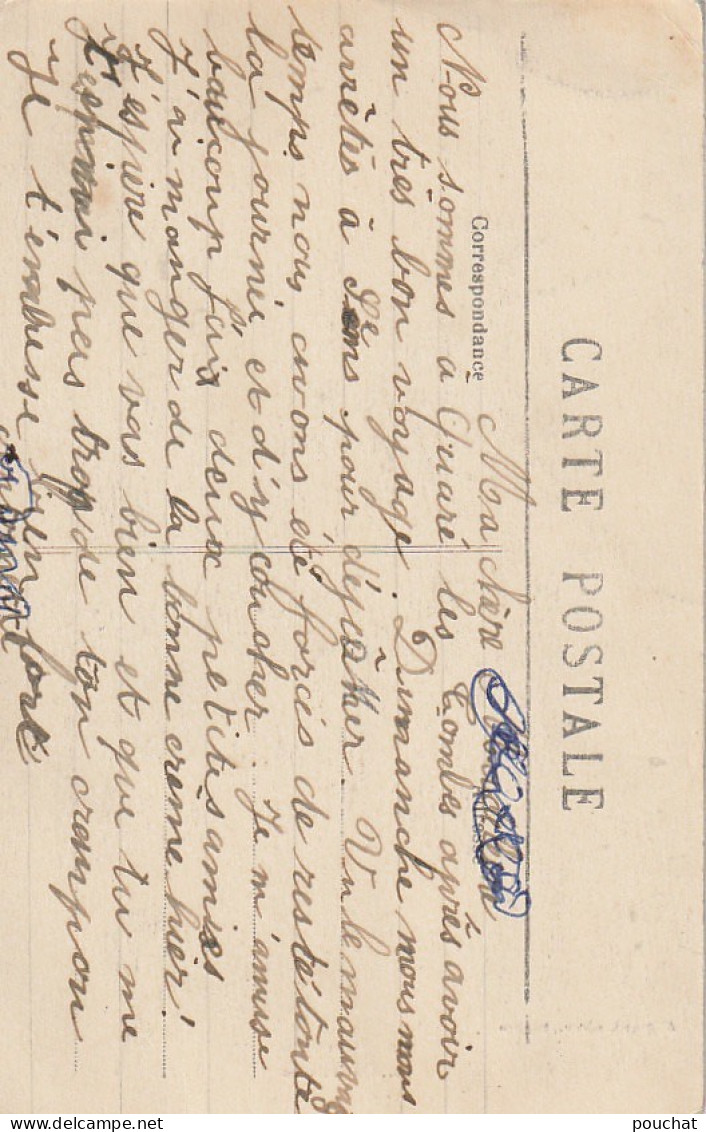 CARTE POSTALE
Correspondance
Ma chère
Nous sommes a Quarré les Tombes après avoir
un très bon voyage. Dimanche nous nous
arrêtés à Sens pour déjeûner. Vu le mauvais
temps nous avons été forcés de resté toute
la journée et d'y coucher. Je m'amuse
beaucoup j'ai deux petites amies
J'ai manger de la bonne crème hier!
J'espère que vas bien et que tu me
pas trop de ton crampon
Je t'embrasse bien fort
pouchat